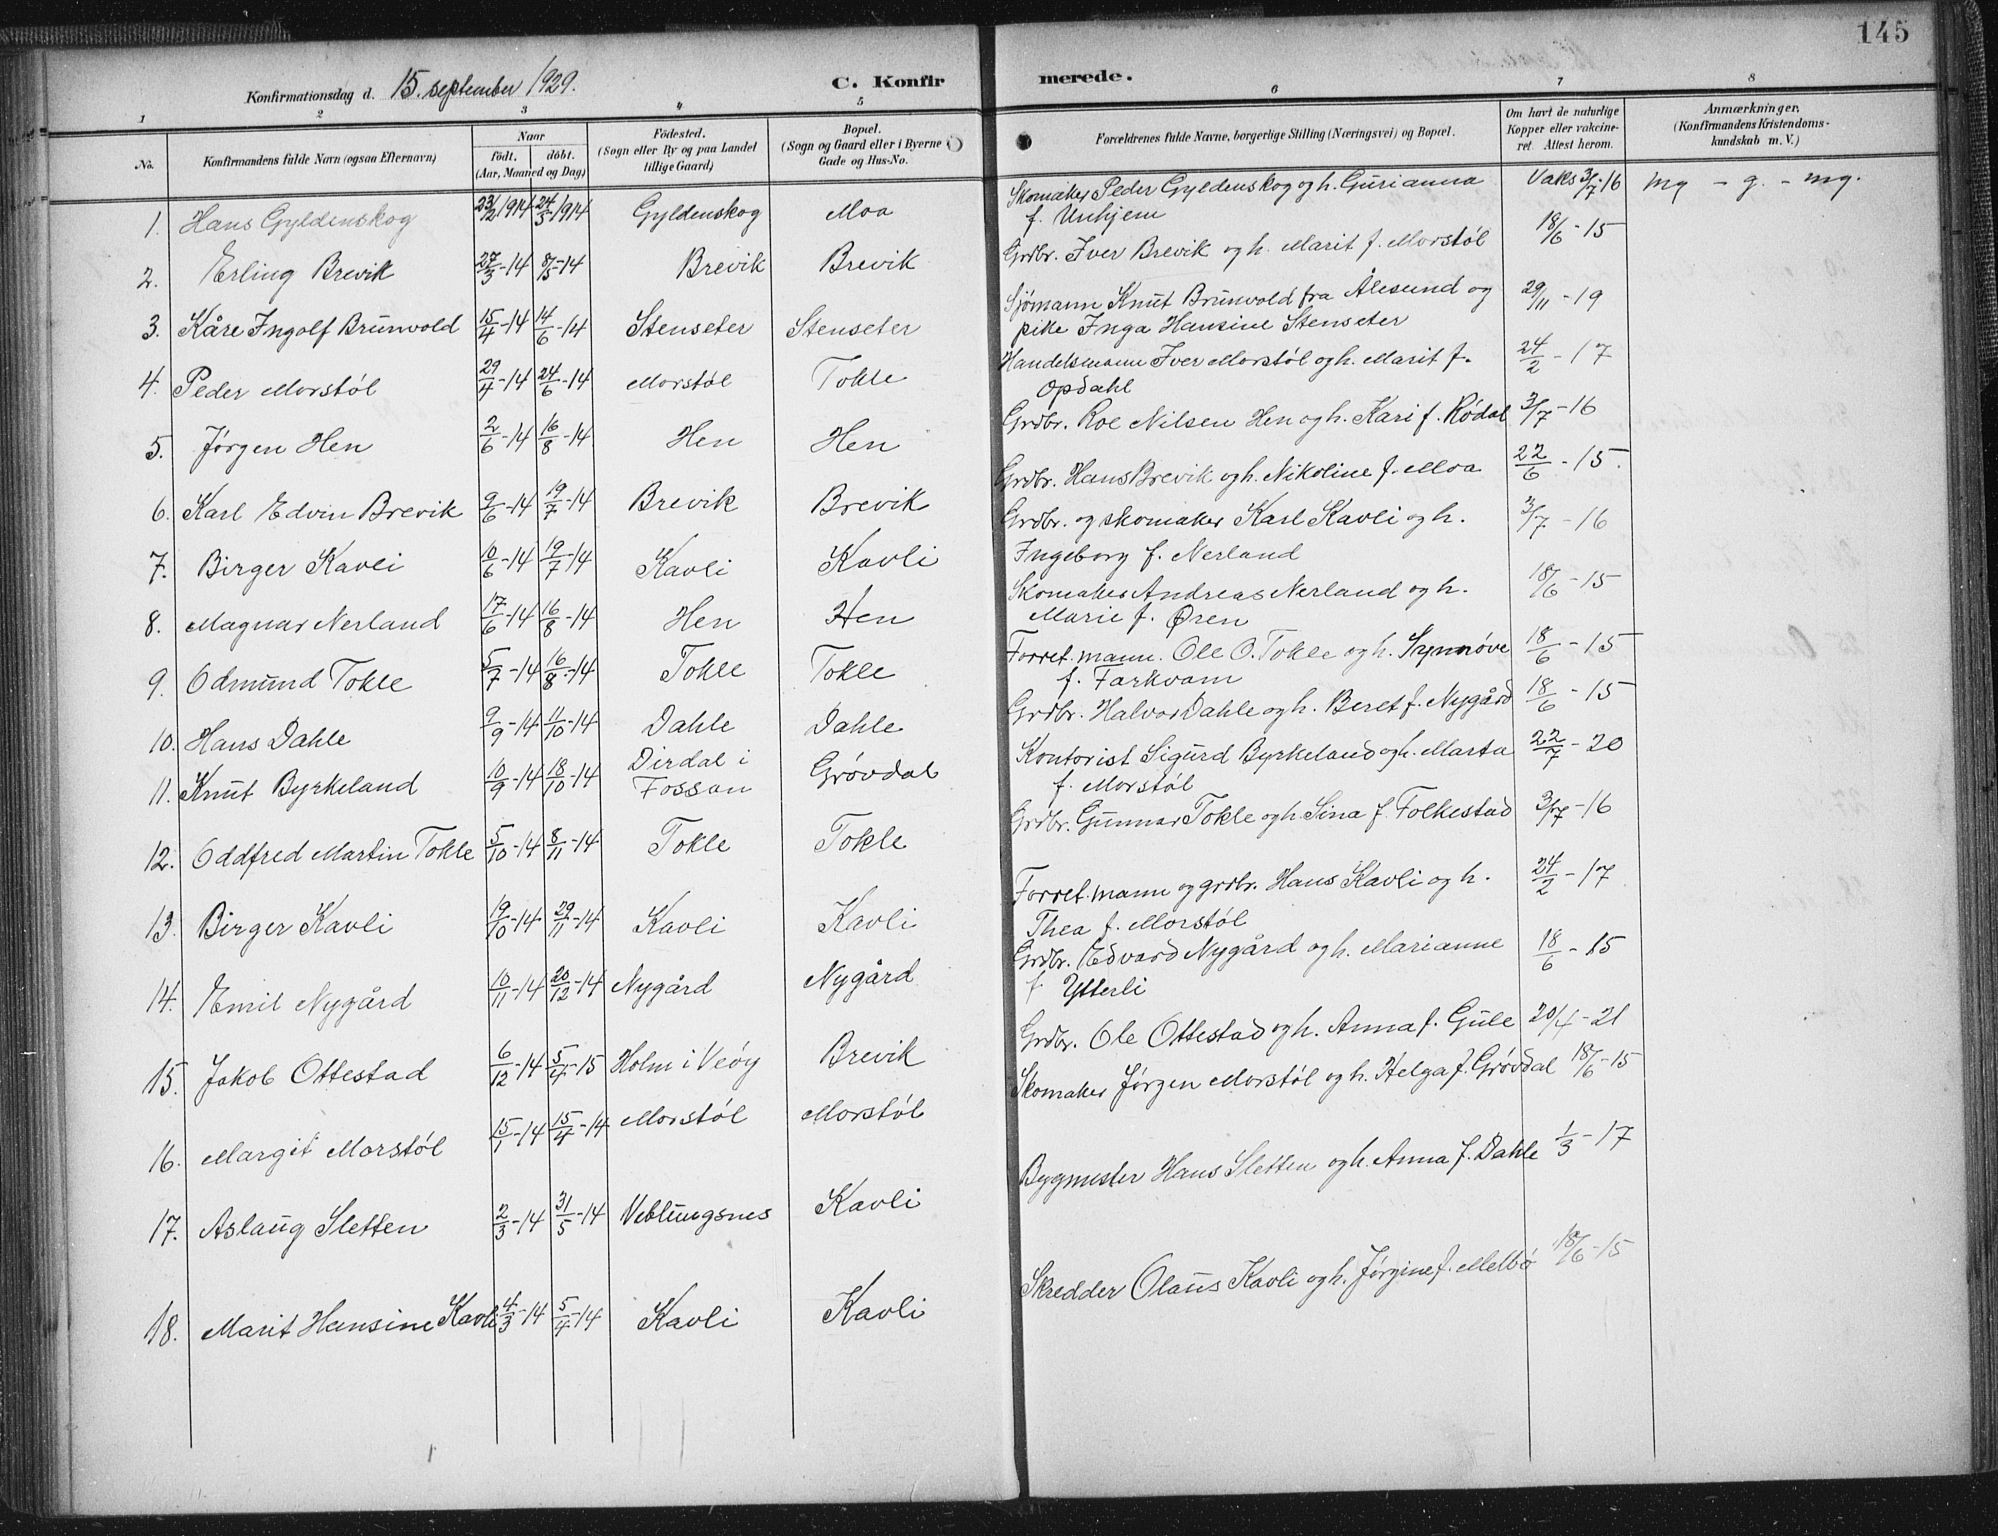 145
Konfirmationsdag d. 15. september 1929.
C. Konfirmerede.
1 2 3 4 5 6 7 8
No.
Konfirmandens fulde Navn (ogsaa Efternavn)
Naar
født. døbt.
(Aar, Maaned og Dag)
Fødested.
(Sogn eller By og paa Landet
tillige Gaard)
Bopæl.
(Sogn og Gaard eller i Byerne
Gade og Hus-No.
Forældrenes fulde Navne, borgerlige Stilling (Næringsvei) og Bopæl.
Om havt de naturlige
Kopper eller vakcine-
ret. Attest herom.
Anmærkninger.
(Konfirmandens Kristendoms-
kundskab m. V.)
1. Hans Gyldenskog 23/2 1914 24/5 1914 Gyldenskog Moa Skomaker Peder Gyldenskog og h. Gurianna Vaks 3/7-16 mg - g. - mg.
f. Unhjem
2. Erling Brevik 27/3-14 8/5-14 Brevik Brevik Grdbr. Iver Brevik og h. Marit f. Morstøl 18/6-15
3. Kåre Ingolf Brunvold 15/4-14 14/6-14 Stenseter Stenseter Sjømann Knut Brunvold fra Ålesund og 29/11-19
pike Inga Hansine Stenseter
4. Peder Morstøl 29/4-14 24/6-14 Morstøl Tokle Handelsmann Iver Morstøl og h. Marit f. 24/2-17
Opdahl
5. Jørgen Hen 2/6-14 16/8-14 Hen Hen Grdbr. Roe Nilsen Hen og h. Kari f. Rødal 3/7-16
6. Karl Edvin Brevik 9/6-14 19/7-14 Brevik Brevik Grdbr. Hans Brevik og h. Nikoline f. Moa 22/6-15.
7. Birger Kavli 10/6-14 19/7-14 Kavli Kavli Grdbr. og skomaker Karl Kavli og h. 3/7-16
Ingeborg f. Nerland
8. Magnar Nerland 17/6-14 16/8-14 Hen Hen Skomaker Andreas Nerland og h. 18/6-15
Marie f. Øren
9. Odmund Tokle 5/7-14 16/8-14 Tokle Tokle Forret.mann. Ole O. Tokle og h. Synnøve 18/6-15
f. Farkvam
10. Hans Dahle 9/9-14 11/10-14 Dahle Dahle Grdbr. Halvor Dahle og h. Beret f. Nygård 18/6-15
11. Knut Byrkeland 10/9-14 18/10-14 Dirdal i Fossan Grøvdal Kontorist Sigurd Byrkeland og h. Marta 22/7-20
f. Morstøl
12. Oddfred Martin Tokle 5/10-14 8/11-14 Tokle Tokle Grdbr. Gunnar Tokle og h. Sina f. Folkestad 3/7-16
13. Birger Kavli 19/10-14 29/11-14 Kavli Kavli Forret.mann og grdbr. Hans Kavli og h. 24/2-17
Thea f. Morstøl
14. Emil Nygård 10/11-14 20/12-14 Nygård Nygård Grdbr. Edvard Nygård og h. Marianne 18/6-15
f. Ytterli
15. Jakob Ottestad 6/12-14 5/4-15 Holm i Veøy Brevik Grdbr. Ole Ottestad og h. Anna f. Gule 20/4-21
16. Margit Morstøl 15/1-14 15/4-14 Morstøl Morstøl Skomaker Jørgen Morstøl og h. Helga f. Grøvdal 18/6-15
17. Aslaug Sletten 2/3-14 31/5-14 Veblungsnes Kavli Bygmester Hans Sletten og h. Anna f. Dahle 1/3-17
18. Marit Hansine Kavli 4/3-14 5/4-14 Kavli Kavli Skredder Olaus Kavli og h. Jørgine f. Melbø 18/6-15